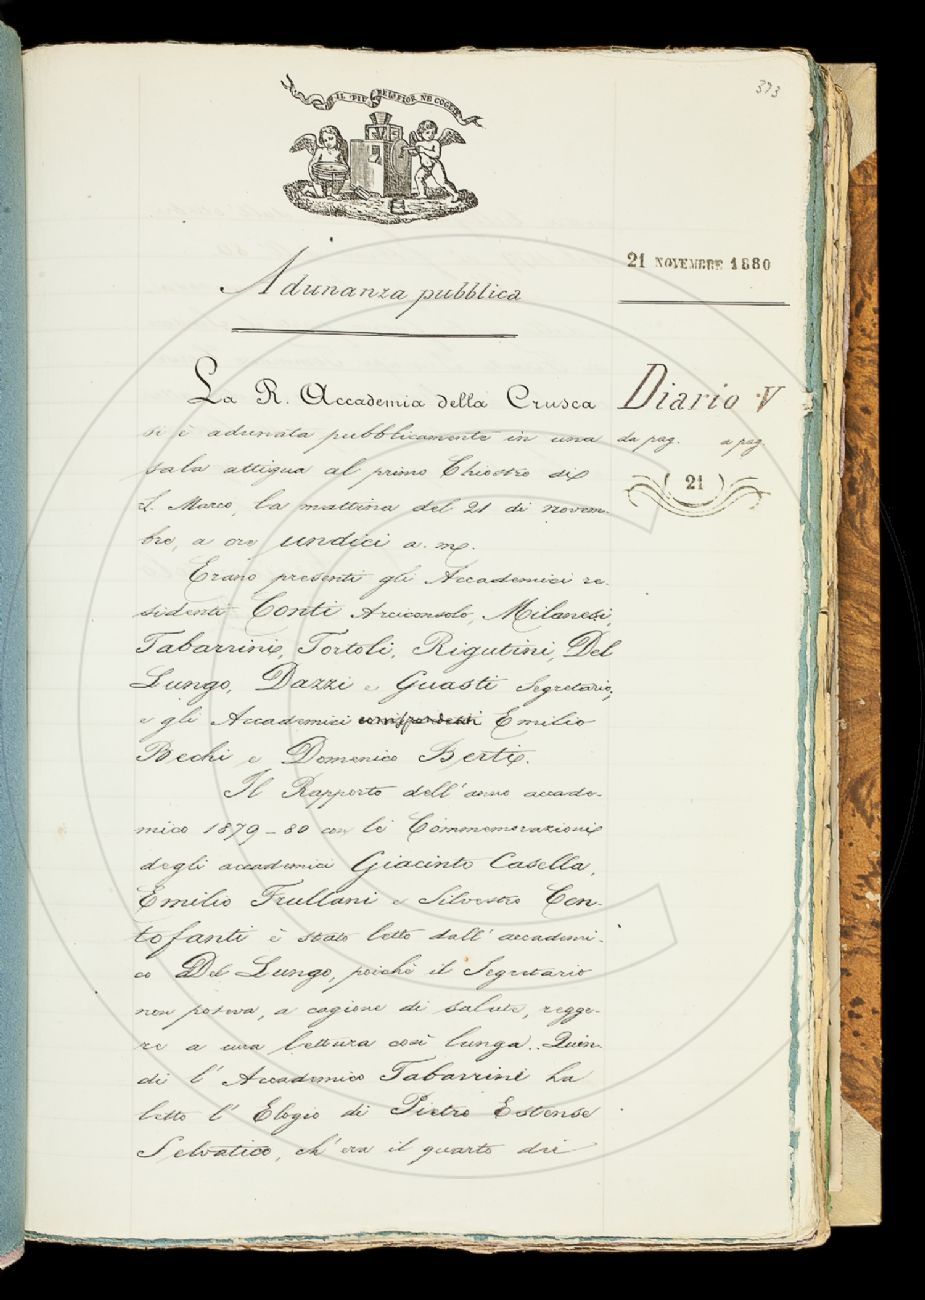 373
IL PIÙ BEL FIOR NE COGLIE
21 NOVEMBRE 1880
Adunanza pubblica
Diario V
da pag. a pag.
21
La R. Accademia della Crusca
si è adunata pubblicamente in una
sala attigua al primo Chiostro di
S. Marco, la mattina del 21 di novem-
bre, a ore undici a. m.
Erano presenti gli Accademici re-
sidenti Conti Arciconsolo, Milanesi,
Tabarrini, Tortoli, Rigutini, Del
Lungo, Dazzi e Guasti Segretario,
e gli Accademici corrispondenti Emilio
Bechi e Domenico Berti.
Il Rapporto dell'anno accade-
mico 1879-80 con le Commemorazioni
degli accademici Giacinto Casella,
Emilio Frullani e Silvestro Cen-
tofanti è stato letto dall'accademi-
co Del Lungo, poichè il Segretario
non poteva, a cagione di salute, regge-
re a una lettura così lunga. Quin-
di l'Accademico Tabarrini ha
letto l'Elogio di Pietro Estense
Selvatico, ch'era il quarto dei